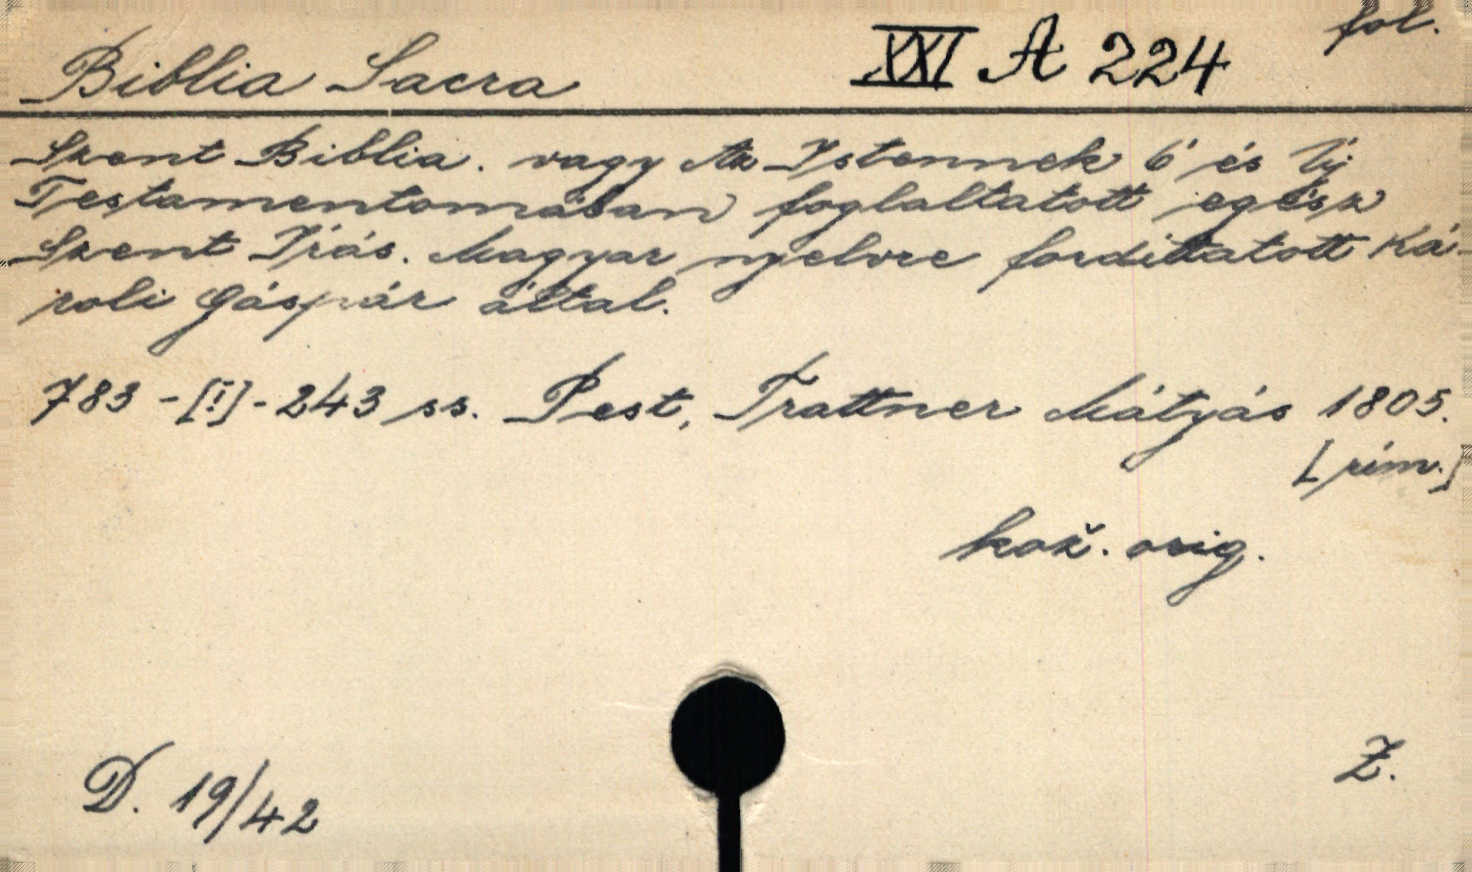 Biblia Sacra XXI A 224 fol.
Szent Biblia. vagy Az Istennek Ó és Új
Testamentomában foglaltatott egész
Szent Irás. Magyar nyelvre fordíttatott Ká-
roli Gáspár által.
783 - [I] - 243 ss. Pest, Trattner Mátyás 1805.
[rím.]
kož. orig.
Z.
D. 19/42